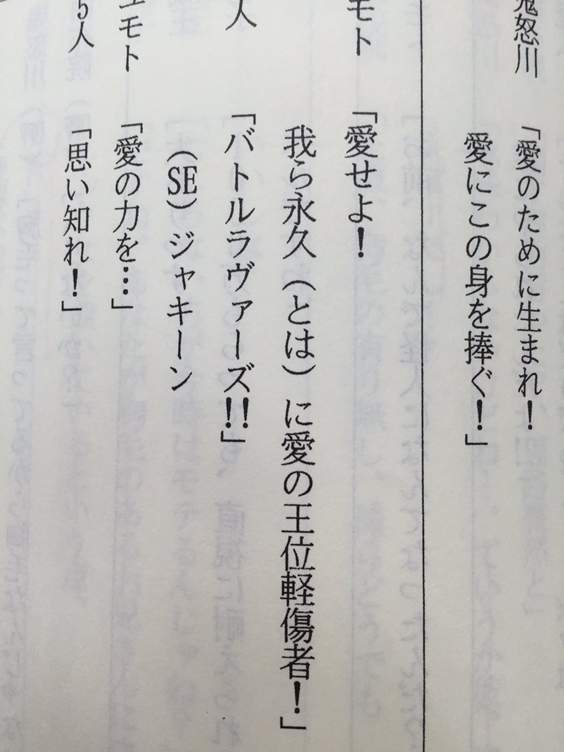 鬼怒川 「愛のために生まれ！
愛にこの身を捧ぐ！」
モト 「愛せよ！
我ら永久（とは）に愛の王位軽傷者！」
人 「バトルラヴァーズ!!」
（SE）ジャキーン
エモト 「愛の力を…」
5人 「思い知れ！」